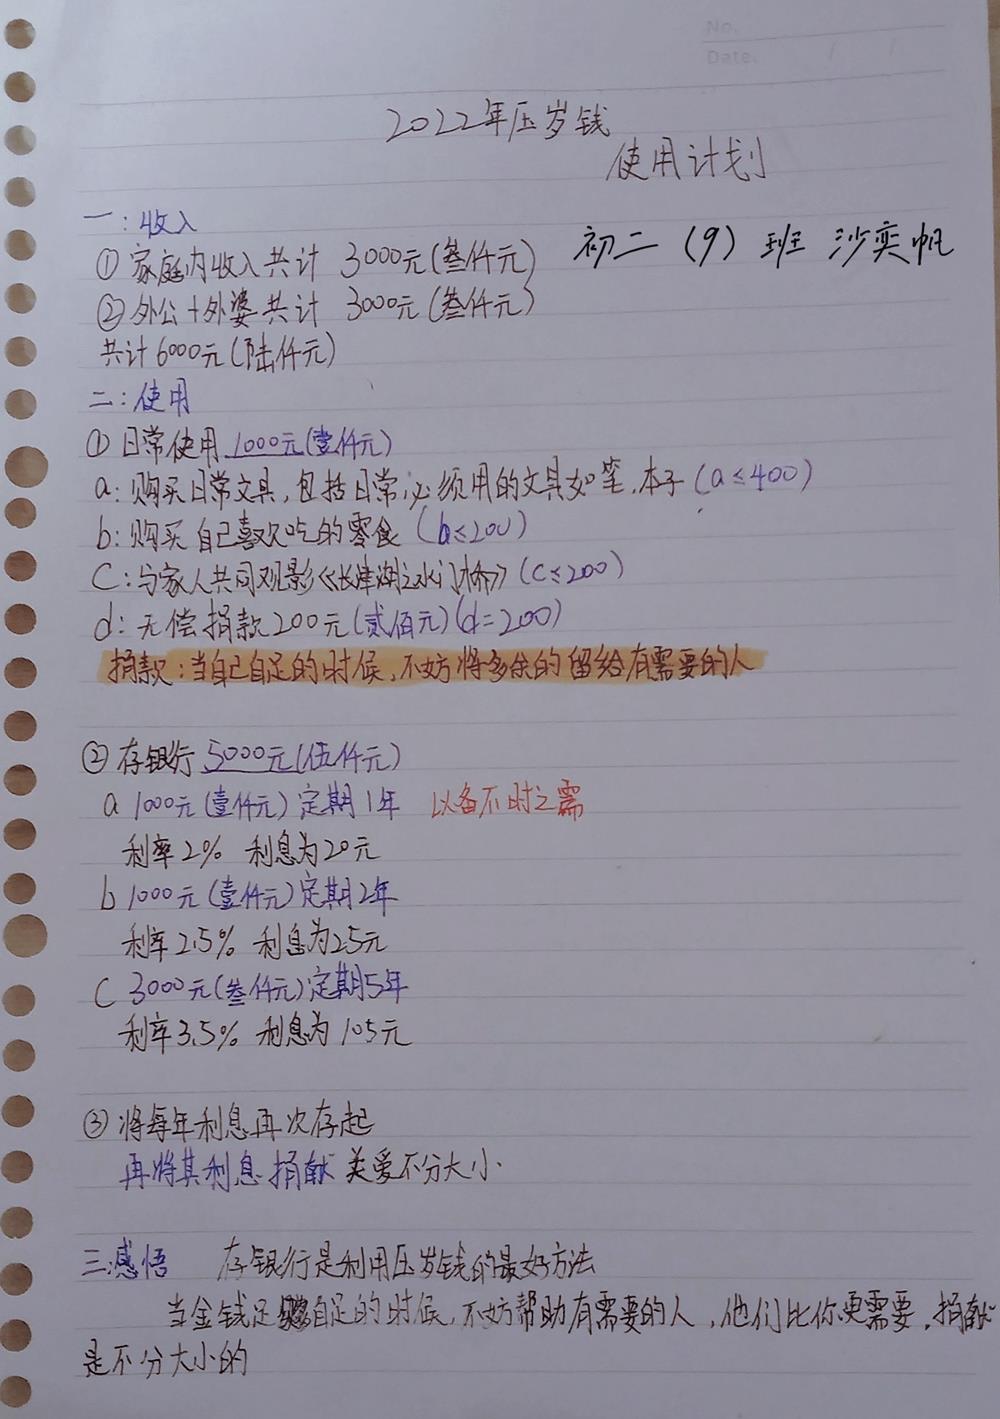 No.
Date.
2022年压岁钱
使用计划
一：收入
初二（9）班 沙奕帆
①家庭内收入共计 3000元(叁仟元)
②外公+外婆共计 3000元(叁仟元)
共计6000元(陆仟元)
二：使用
①日常使用 1000元(壹仟元)
a：购买日常文具，包括日常必须用的文具如笔，本子（a≤400）
b：购买自己喜欢吃的零食（b≤200）
C：与家人共同观影《长津湖之水门桥》（c≤200）
d：无偿捐款200元(贰佰元)(d=200)
捐款：当自己自足的时候，不妨将多余的留给有需要的人
②存银行 5000元(伍仟元)
a 1000元(壹仟元) 定期1年 以备不时之需
利率2% 利息为20元
b 1000元(壹仟元)定期2年
利率2.5% 利息为25元
C 3000元(叁仟元)定期5年
利率3.5% 利息为105元
③将每年利息再次存起
再将其利息捐献 关爱不分大小.
三：感悟 存银行是利用压岁钱的最好方法
当金钱足自足的时候，不妨帮助有需要的人，他们比你更需要，捐献
是不分大小的